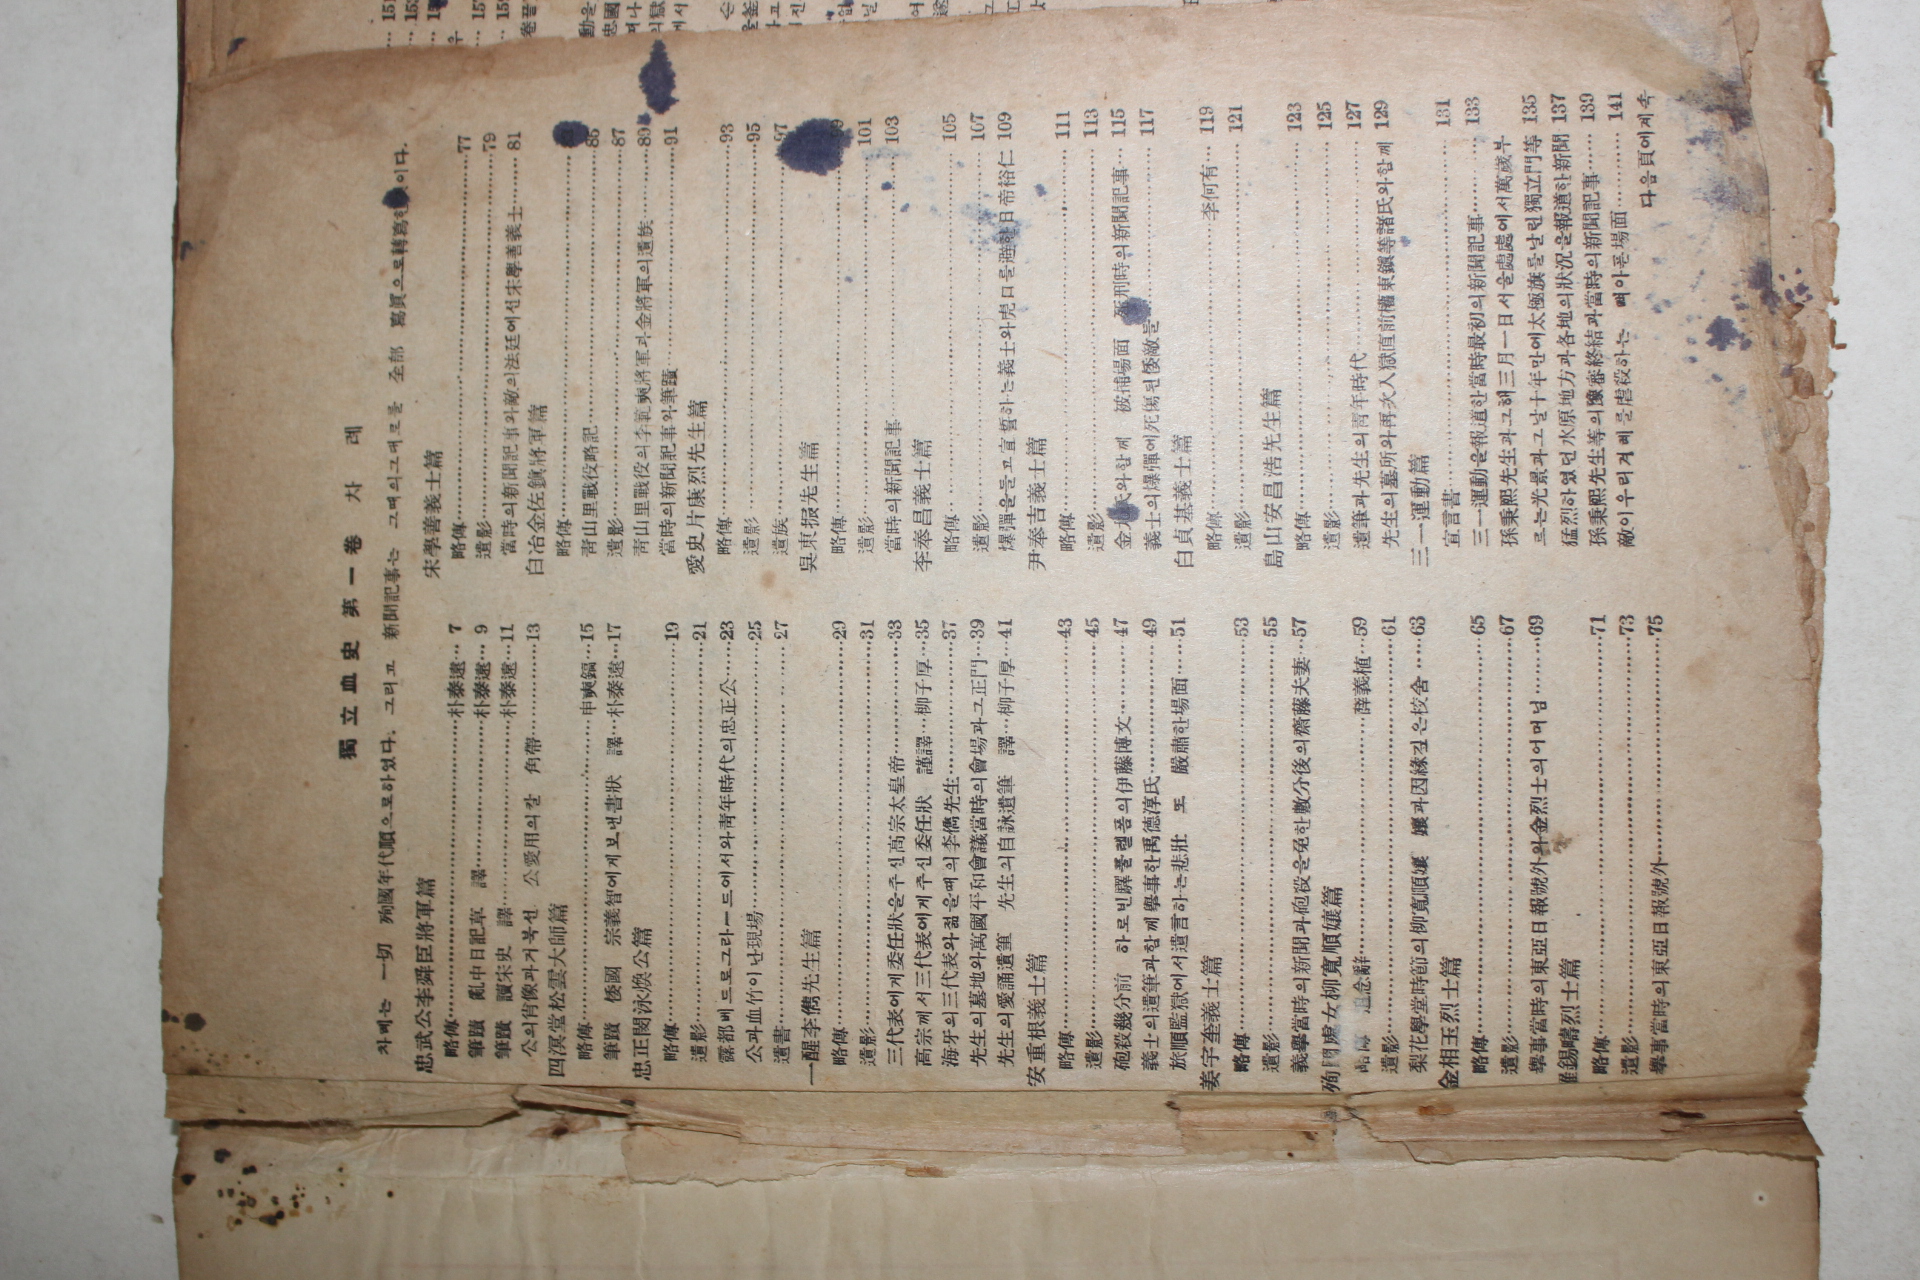 獨立血史 第一卷 차례
차례는 一切 殉國年代順으로하였다. 그리고 新聞記事는 그때의그대로를 全部 寫眞으로轉寫한 이다.
忠武公李舜臣將軍篇
略傳…朴泰遠… 7
筆蹟 亂中日記草 譯…朴泰遠… 9
筆蹟 讀宋史 譯…朴泰遠…11
公의肖像과거북선 公愛用의칼 角帶…13
四溟堂松雲大師篇
略傳…申奭鎬…15
筆蹟 倭國 宗義智에게보낸書狀 譯…朴泰遠…17
忠正閔泳煥公篇
略傳…19
遺影…21
露都페트로그라ー드에서와靑年時代의忠正公…23
公과血竹이난現場…25
遺書…27
一醒李儁先生篇
略傳…29
遺影…31
三代表에게委任狀을주신高宗太皇帝…33
高宗께서三代表에게주신委任狀 謹譯…柳子厚…35
海牙의三代表와젊을때의李儁先生…37
先生의墓地와萬國平和會議當時의會場과그正門…39
先生의愛誦遺筆 先生의自詠遺筆 譯…柳子厚…41
安重根義士篇
略傳…43
遺影…45
砲殺幾分前 하르빈驛플랱폼의伊藤博文…47
義士의遺筆과함께擧事한禹德淳氏…49
旅順監獄에서遺言하는悲壯 또 嚴肅한場面…51
姜宇奎義士篇
略傳…53
遺影…55
義擧當時의新聞과砲殺을免한數分後의齋藤夫妻…57
殉國處女柳寬順孃篇
略傳 追念辭…薛義植…59
遺影…61
梨花學堂時節의柳寬順孃 孃과因緣깊은校舍…63
金相玉烈士篇
略傳…65
遺影…67
擧事當時의東亞日報號外와金烈士의어머님…69
羅錫疇烈士篇
略傳…71
遺影…73
擧事當時의東亞日報號外…75
宋學善義士篇
略傳…77
遺影…79
當時의新聞記事와敵의法廷에선宋學善義士…81
白冶金佐鎭將軍篇
略傳…
靑山里戰役略記…85
遺影…87
靑山里戰役의李範奭將軍과金將軍의遺族…89
當時의新聞記事와筆蹟…91
愛史片康烈先生篇
略傳…93
遺影…95
遺族…97
吳東振先生篇
略傳…99
遺影…101
當時의新聞記事…103
李奉昌義士篇
略傳…105
遺影…107
爆彈을들고宣誓하는義士와虎口를避한日帝裕仁 109
尹奉吉義士篇
略傳…111
遺影…113
金 氏와함께 被捕場面 死刑時의新聞記事…115
義士의爆彈에死傷된倭敵들…117
白貞基義士篇
略傳…李何有…119
遺影…121
島山安昌浩先生篇
略傳…123
遺影…125
遺筆과先生의靑年時代…127
先生의墓所와再次入獄直前權東鎭等諸氏와함께 129
三一運動篇
宣言書…131
三一運動을報道한當時最初의新聞記事…133
孫秉熙先生과그해三月一日서울處處에서萬歲부
르는光景과그날十年만에太極旗를날린獨立門等 135
猛烈하였던水原地方과各地의狀況을報道한新聞 137
孫秉熙先生等의豫審終結과當時의新聞記事…139
敵이우리겨레를虐殺하는 뼈아픈場面…141
다음頁에계속